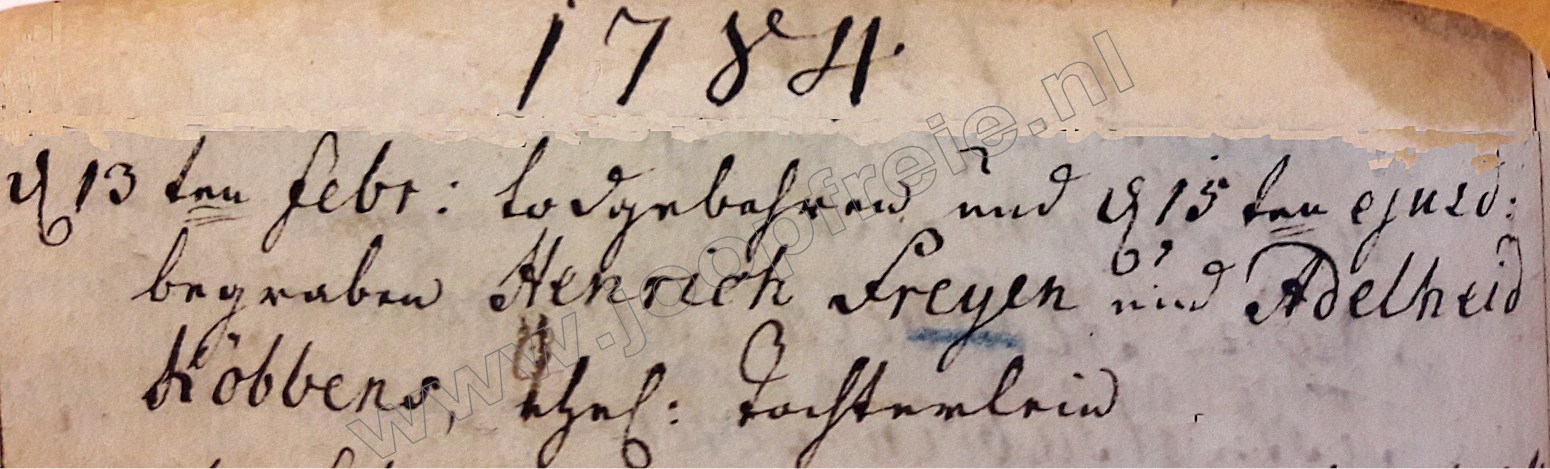 1784.
d 13 ten Febr: todgebohren und d 15 ten ejusd:
begraben Henrich Freyen und Adelheid
Köbbens, Ehel: Töchterlein
www.joopfreie.nl